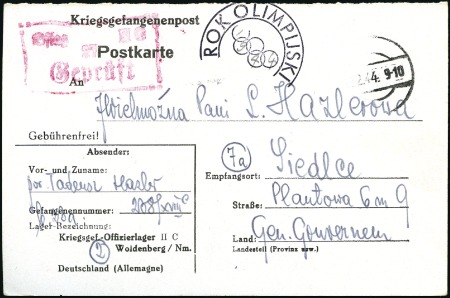 Kriegsgefangenenpost
Postkarte
Geprüft
ROK OLIMPIJSKI
44. 9-10
An
Pani L. Hazlerowa
Gebührenfrei!
Absender:
Vor- und Zuname:
por. Tadeusz Hasler
Gefangenennummer:
Lager-Bezeichnung:
Kriegsgef.-Offizierlager II C
2 Woldenberg / Nm.
Deutschland (Allemagne)
7a Siedlce
Empfangsort:
Straße: Plantowa 6 m 9
Land: Gen. Gouvernem
Landesteil (Provinz usw.)